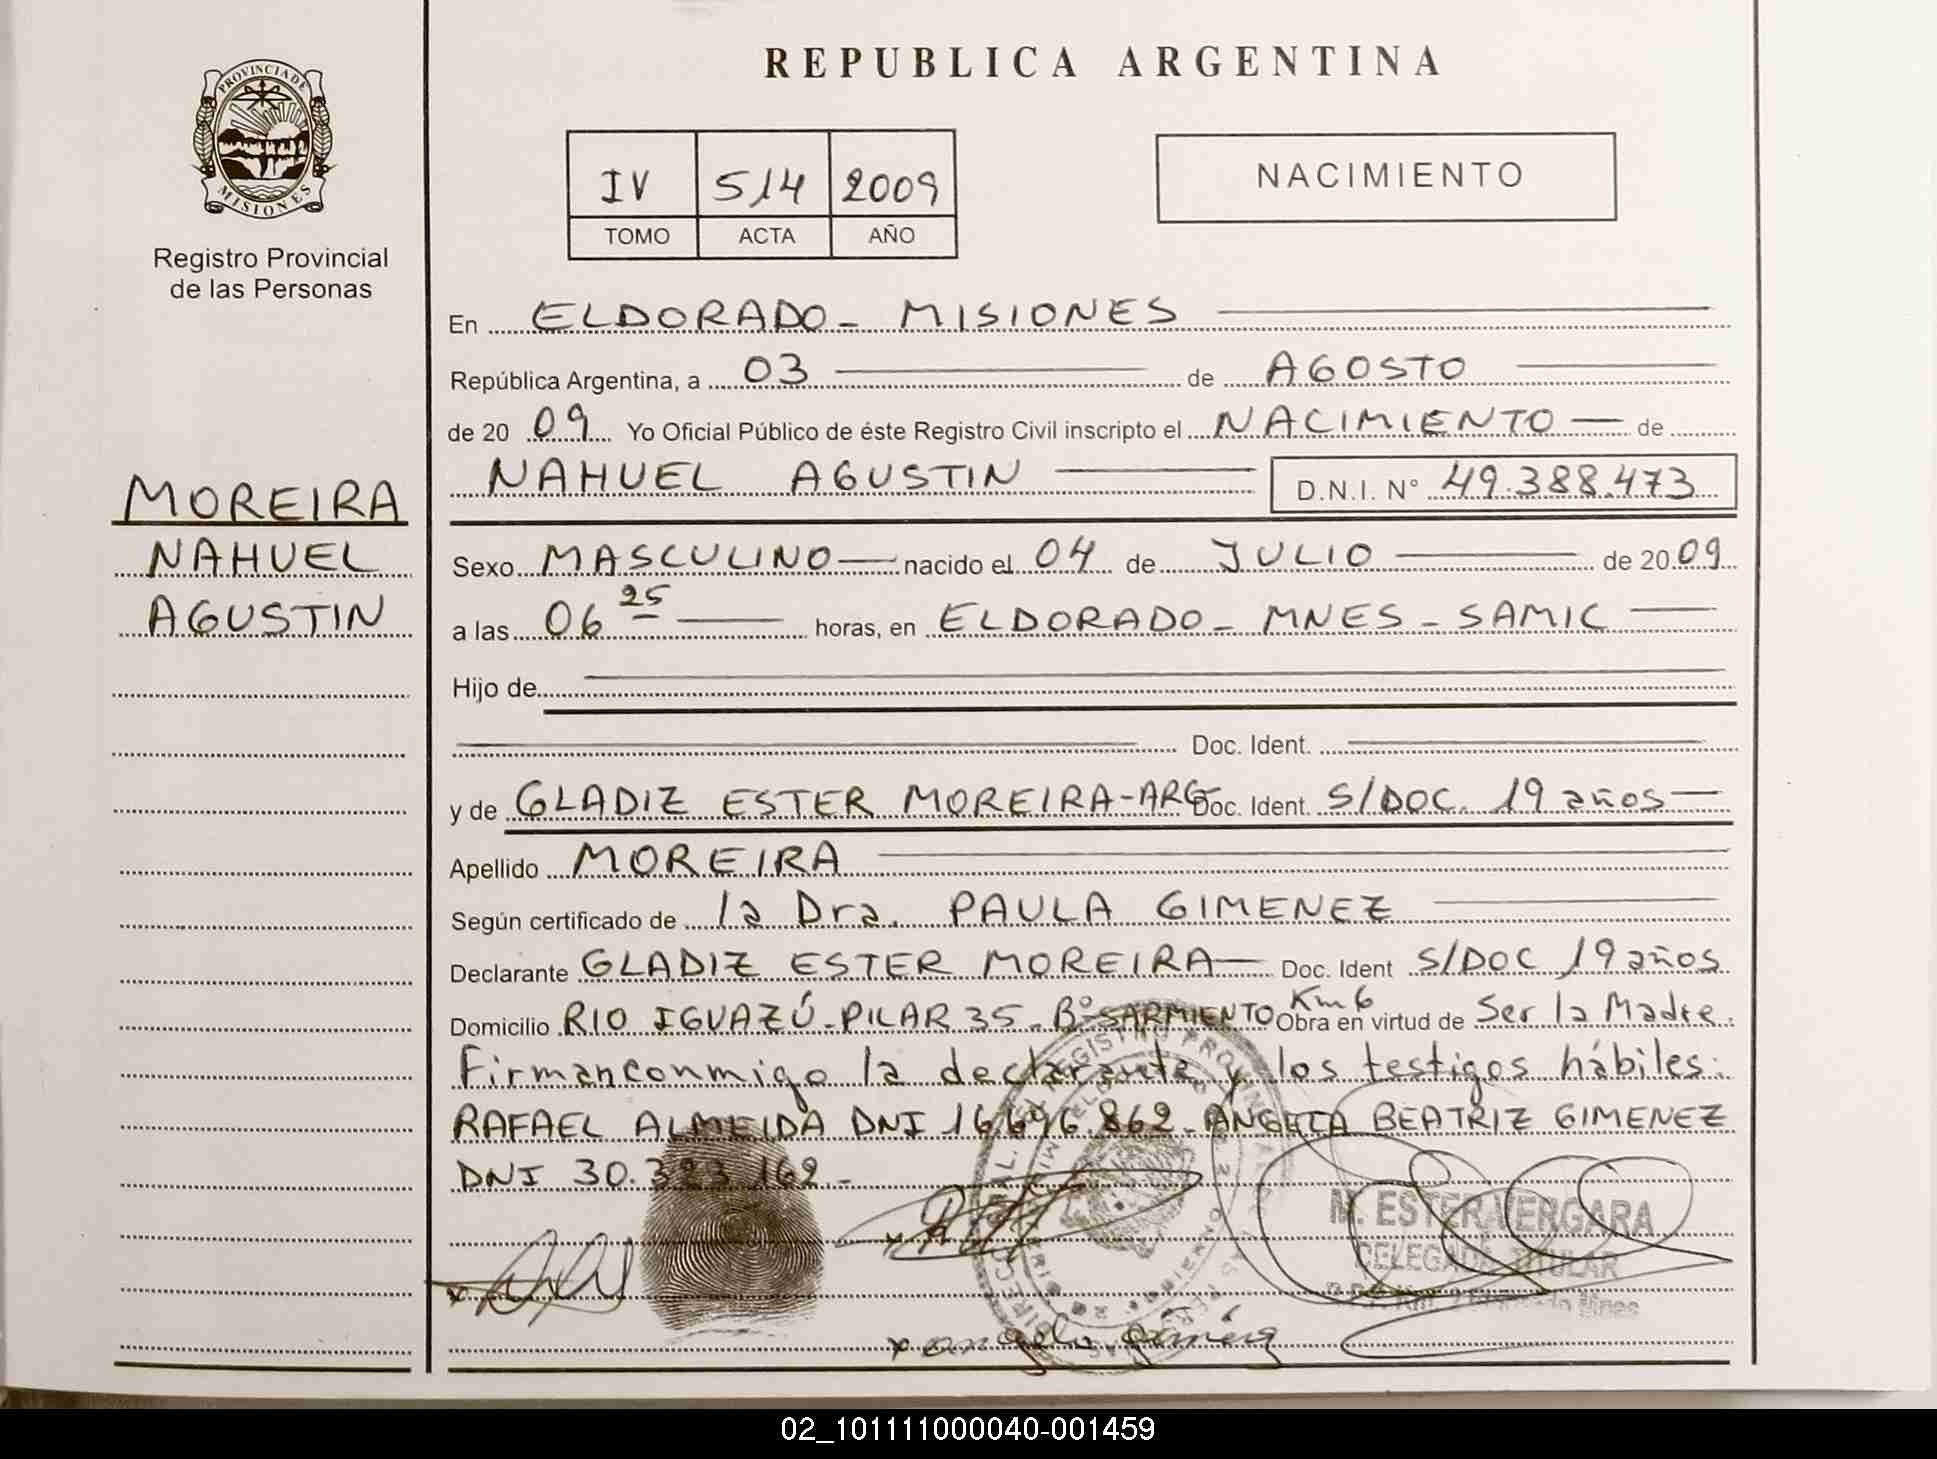 PROVINCIA DE
MISIONES
Registro Provincial
de las Personas
MOREIRA
NAHUEL
AGUSTIN
REPUBLICA ARGENTINA
IV 514 2009
TOMO ACTA AÑO
NACIMIENTO
En ELDORADO - MISIONES
República Argentina, a 03 de AGOSTO
de 20 09 Yo Oficial Público de éste Registro Civil inscripto el NACIMIENTO de
NAHUEL AGUSTIN D.N.I. N° 49.388.473
Sexo MASCULINO nacido el 04 de JULIO de 20 09
a las 06 25 horas, en ELDORADO - MNES - SAMIC
Hijo de
Doc. Ident.
y de GLADIZ ESTER MOREIRA-ARG Doc. Ident. S/DOC. 19 años
Apellido MOREIRA
Según certificado de la Dra. PAULA GIMENEZ
Declarante GLADIZ ESTER MOREIRA Doc. Ident S/DOC 19 años
Domicilio RIO IGUAZÚ - PILAR 35 - B° SARMIENTO Km 6 Obra en virtud de Ser la Madre.
Firman conmigo la declarante y los testigos hábiles:
RAFAEL ALMEIDA DNI 16.696.862 - ANGELA BEATRIZ GIMENEZ
DNI 30.323.162 -
M. ESTER VERGARA
DELEGADA TITULAR
x angela giménez
02_101111000040-001459